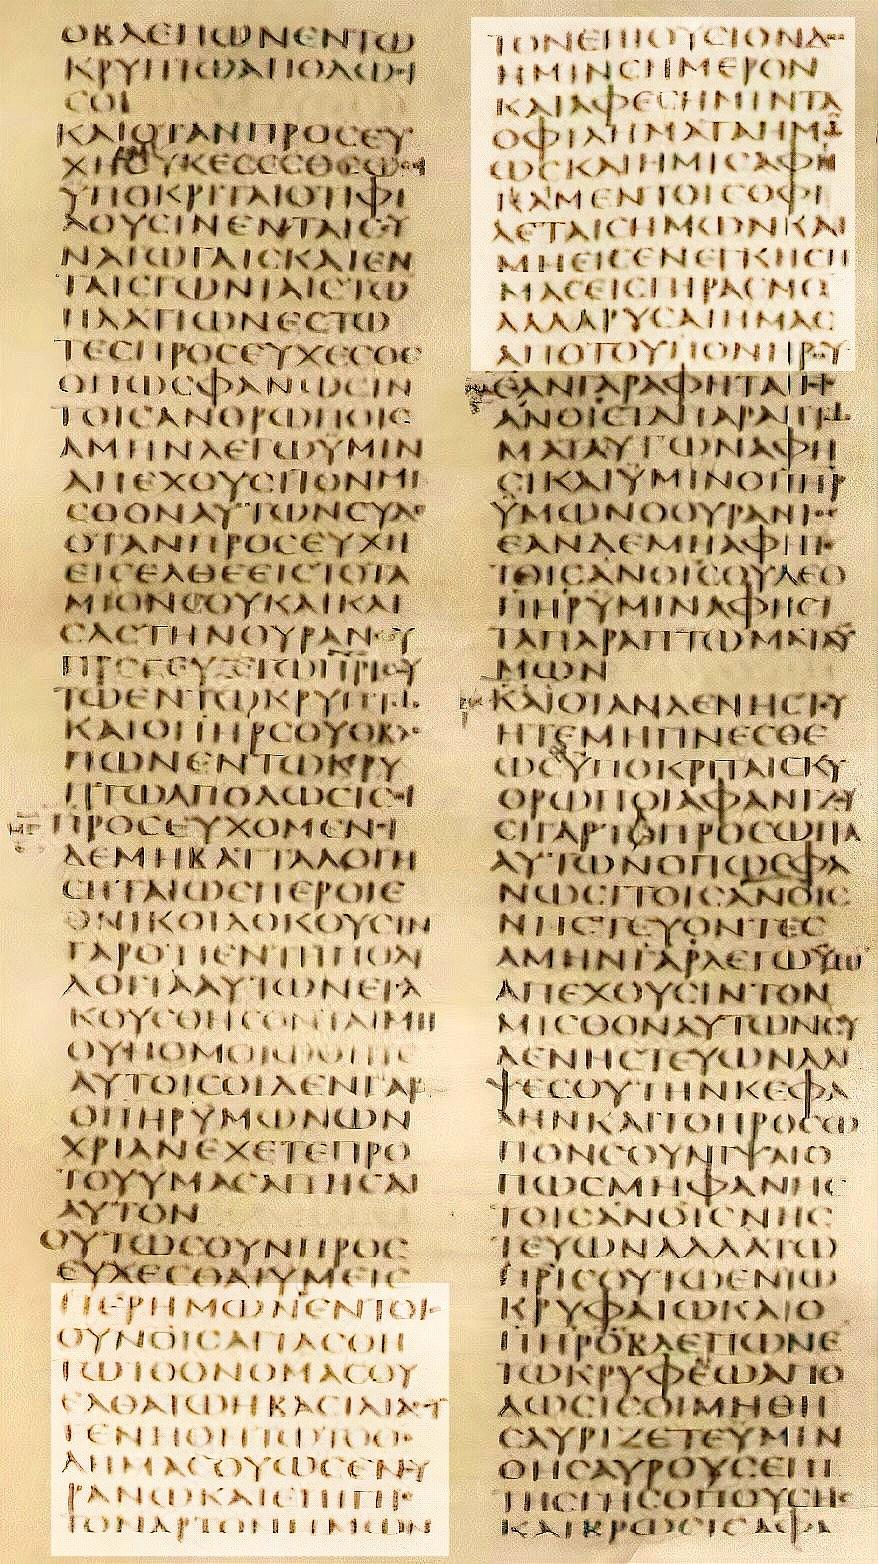 ΟΒΛΕΠΩΝΕΝΤΩ
ΚΡΥΠΤΩΑΠΟΔΩϹΙ
ϹΟΙ
ΚΑΙΟΤΑΝΠΡΟϹΕΥ
ΧΗΟΥΚΕϹΕϹΘΕΩϹΟΙ
ΥΠΟΚΡΙΤΑΙΟΤΙΦΙ
ΛΟΥϹΙΝΕΝΤΑΙϹϹΥ
ΝΑΓΩΓΑΙϹΚΑΙΕΝ
ΤΑΙϹΓΩΝΙΑΙϹΤΩ
ΠΛΑΤΙΩΝΕϹΤΩ
ΤΕϹΠΡΟϹΕΥΧΕϹΘΕ
ΟΠΩϹΦΑΝΩϹΙΝ
ΤΟΙϹΑΝΘΡΩΠΟΙϹ
ΑΜΗΝΛΕΓΩΫΜΙΝ
ΑΠΕΧΟΥϹΙΤΟΝΜΙ
ϹΘΟΝΑΥΤΩΝϹΥΔΕ
ΟΤΑΝΠΡΟϹΕΥΧΗ
ΕΙϹΕΛΘΕΕΙϹΤΟΤΑ
ΜΙΟΝϹΟΥΚΑΙΚΛΙ
ϹΑϹΤΗΝΘΥΡΑΝϹΟΥ
ΠΡΟϹΕΥΞΕΤΩΠΡΙϹΟΥ
ΤΩΕΝΤΩΚΡΥΠΤΩ
ΚΑΙΟΠΗΡϹΟΥΟΒΛΕ
ΠΩΝΕΝΤΩΚΡΥ
ΠΤΩΑΠΟΔΩϹΙϹΟΙ
ΠΡΟϹΕΥΧΟΜΕΝΟΙ
ΔΕΜΗΒΑΤΤΑΛΟΓΗ
ϹΗΤΑΙΩϹΠΕΡΟΙΕ
ΘΝΙΚΟΙΔΟΚΟΥϹΙΝ
ΓΑΡΟΤΙΕΝΤΗΠΟΛΥ
ΛΟΓΙΑΑΥΤΩΝΕΙϹΑ
ΚΟΥϹΘΗϹΟΝΤΑΙΜΗ
ΟΥΝΟΜΟΙΩΘΗΤΕ
ΑΥΤΟΙϹΟΙΔΕΝΓΑΡ
ΟΠΗΡΫΜΩΝΩΝ
ΧΡΙΑΝΕΧΕΤΕΠΡΟ
ΤΟΥΫΜΑϹΑΙΤΗϹΑΙ
ΑΥΤΟΝ
ΟΥΤΩϹΟΥΝΠΡΟϹ
ΕΥΧΕϹΘΑΙΫΜΕΙϹ
ΠΕΡΗΜΩΝΟΕΝΤΟΙϹ
ΟΥΝΟΙϹΑΓΙΑϹΘΗ
ΤΩΤΟΟΝΟΜΑϹΟΥ
ΕΛΘΑΤΩΗΒΑϹΙΛΙΑϹΟΥ
ΓΕΝΗΘΗΤΩΤΟΘΕ
ΛΗΜΑϹΟΥΩϹΕΝΟΥ
ΡΑΝΩΚΑΙΕΠΙΓΗϹ
ΤΟΝΑΡΤΟΝΗΜΩΝ
ΤΟΝΕΠΙΟΥϹΙΟΝΔΟϹ
ΗΜΙΝϹΗΜΕΡΟΝ
ΚΑΙΑΦΕϹΗΜΙΝΤΑ
ΟΦΙΛΗΜΑΤΑΗΜΩ
ΩϹΚΑΙΗΜΙϹΑΦΗ
ΚΑΜΕΝΤΟΙϹΟΦΙ
ΛΕΤΑΙϹΗΜΩΝΚΑΙ
ΜΗΕΙϹΕΝΕΓΚΗϹΗ
ΜΑϹΕΙϹΠΙΡΑϹΜΟ
ΑΛΛΑΡΥϹΑΙΗΜΑϹ
ΑΠΟΤΟΥΠΟΝΗΡΟΥ
ΕΑΝΓΑΡΑΦΗΤΑΙ
ΑΝΟΙϹΤΑΠΑΡΑΠΤΩ
ΜΑΤΑΑΥΤΩΝΑΦΗ
ϹΙΚΑΙΫΜΙΝΟΠΗΡ
ΫΜΩΝΟΟΥΡΑΝΙΟϹ
ΕΑΝΔΕΜΗΑΦΗΤΕ
ΤΟΙϹΑΝΟΙϹΟΥΔΕΟ
ΠΗΡΫΜΙΝΑΦΗϹΙ
ΤΑΠΑΡΑΠΤΩΜΑΤΑΫ
ΜΩΝ
ΚΑΙΟΤΑΝΔΕΝΗϹΤΕΥ
ΗΤΕΜΗΓΙΝΕϹΘΕ
ΩϹΫΠΟΚΡΙΤΑΙϹΚΥ
ΘΡΩΠΟΙΑΦΑΝΙΖΟΥ
ϹΙΓΑΡΤΟΠΡΟϹΩΠΑ
ΑΥΤΩΝΟΠΩϹΦΑ
ΝΩϹΙΤΟΙϹΑΝΟΙϹ
ΝΗϹΤΕΥΟΝΤΕϹ
ΑΜΗΝΓΑΡΛΕΓΩΫΜΙ
ΑΠΕΧΟΥϹΙΝΤΟΝ
ΜΙϹΘΟΝΑΥΤΩΝϹΥ
ΔΕΝΗϹΤΕΥΩΝΑΛΙ
ΨΕϹΟΥΤΗΝΚΕΦΑ
ΛΗΝΚΑΙΤΟΠΡΟϹΩ
ΠΟΝϹΟΥΝΙΨΑΙΟ
ΠΩϹΜΗΦΑΝΗϹ
ΤΟΙϹΑΝΟΙϹΝΗϹ
ΤΕΥΩΝΑΛΛΑΤΩ
ΠΡΙϹΟΥΤΩΕΝΤΩ
ΚΡΥΦΑΙΩΚΑΙΟ
ΠΗΡΟΒΛΕΠΩΝΕ
ΤΩΚΡΥΦΕΩΑΠΟ
ΔΩϹΙϹΟΙΜΗΘΗ
ϹΑΥΡΙΖΕΤΕΥΜΙΝ
ΘΗϹΑΥΡΟΥϹΕΠΙ
ΤΗϹΓΗϹΟΠΟΥϹΗϹ
ΚΑΙΒΡΩϹΙϹΑΦΑ